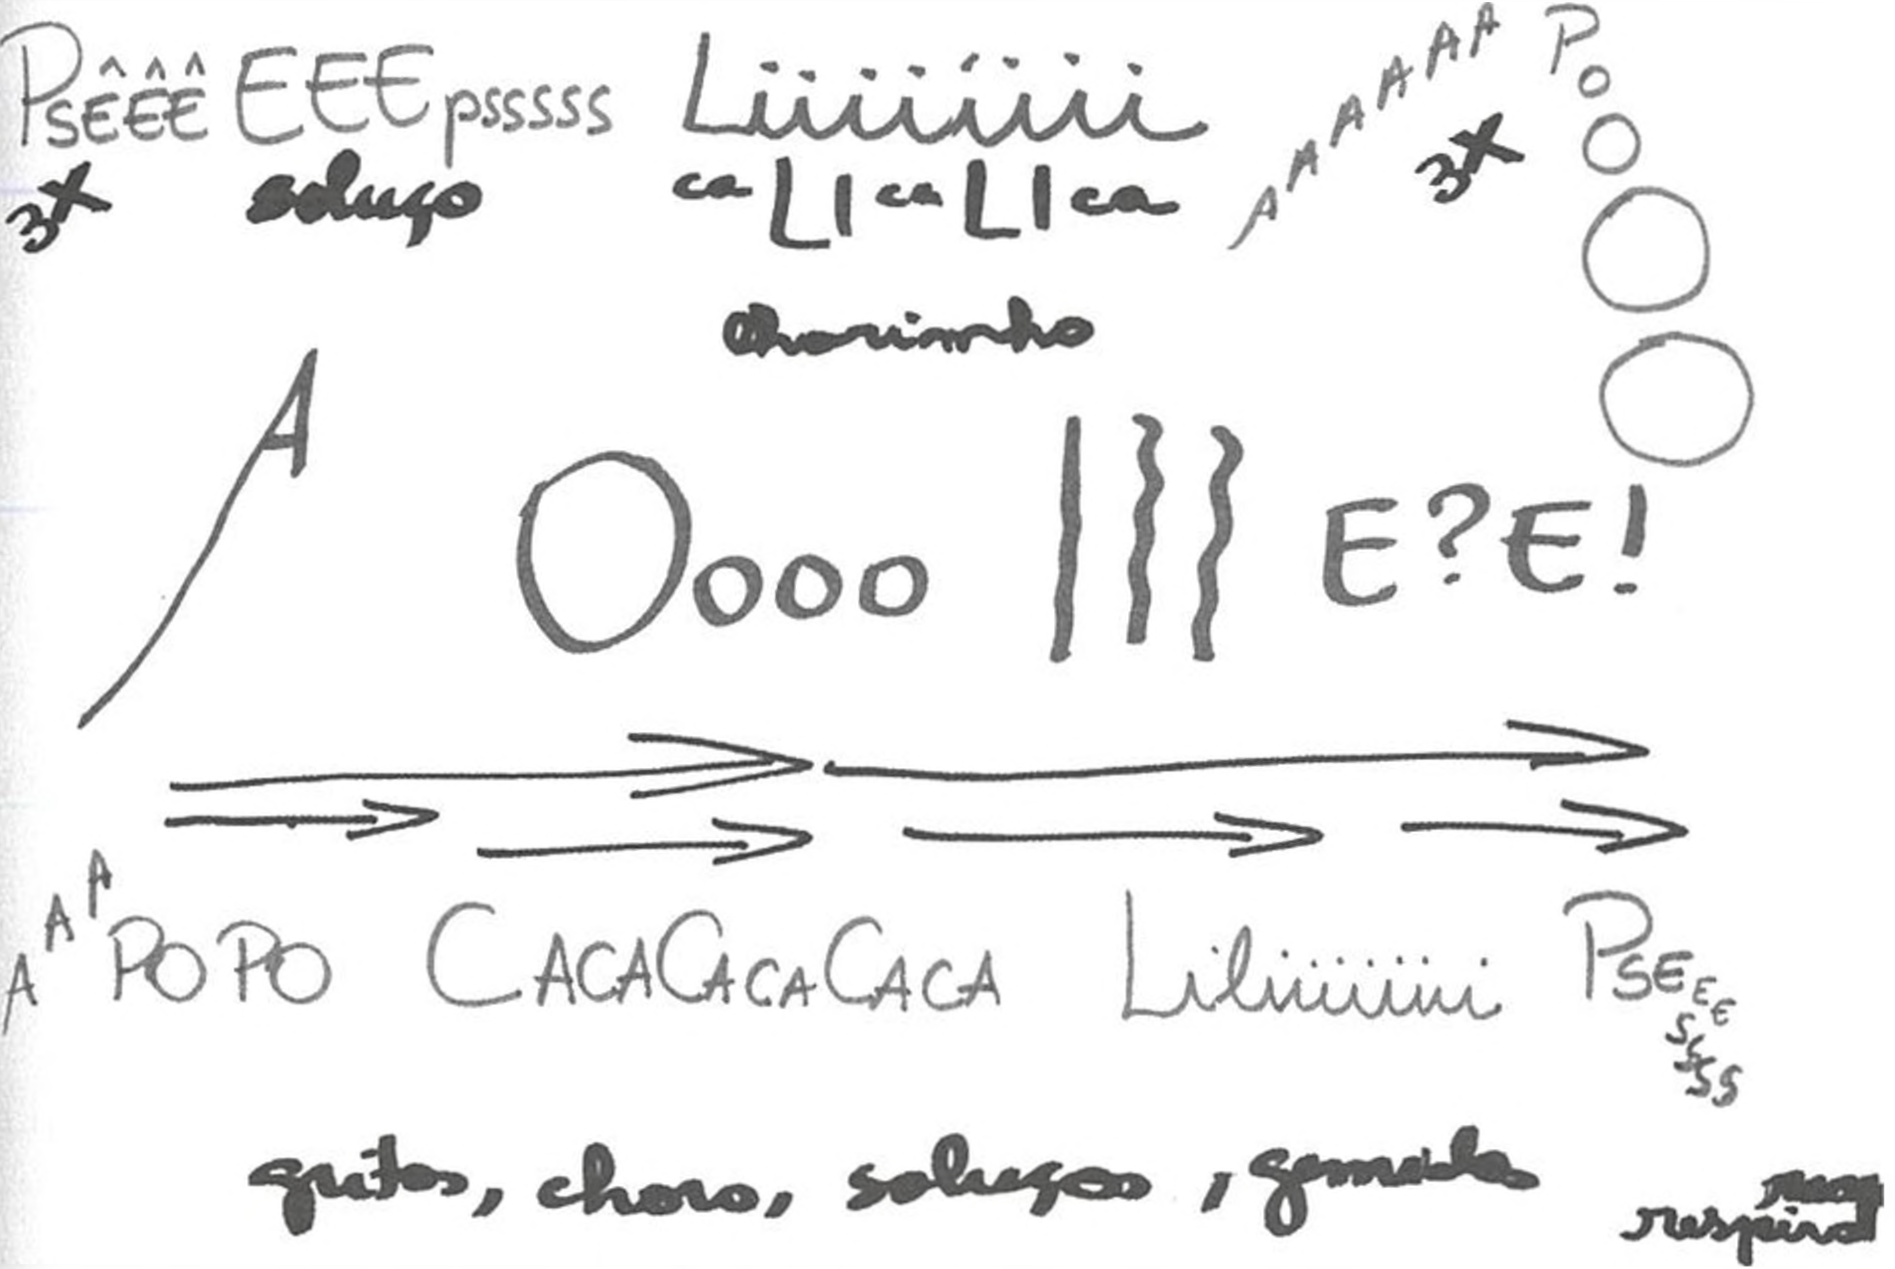 PSÊÊÊ EEEpsssss Liiiiiiii AAAAAAA PO
O
O
O
3X soluço caLIcaLIca 3X
chorinho
A Oooo III E?E!
AAA POPO CACACACACACA Liliiiiiiii PSEEE
SSSS
gritos, choro, soluços, gemidos
respira